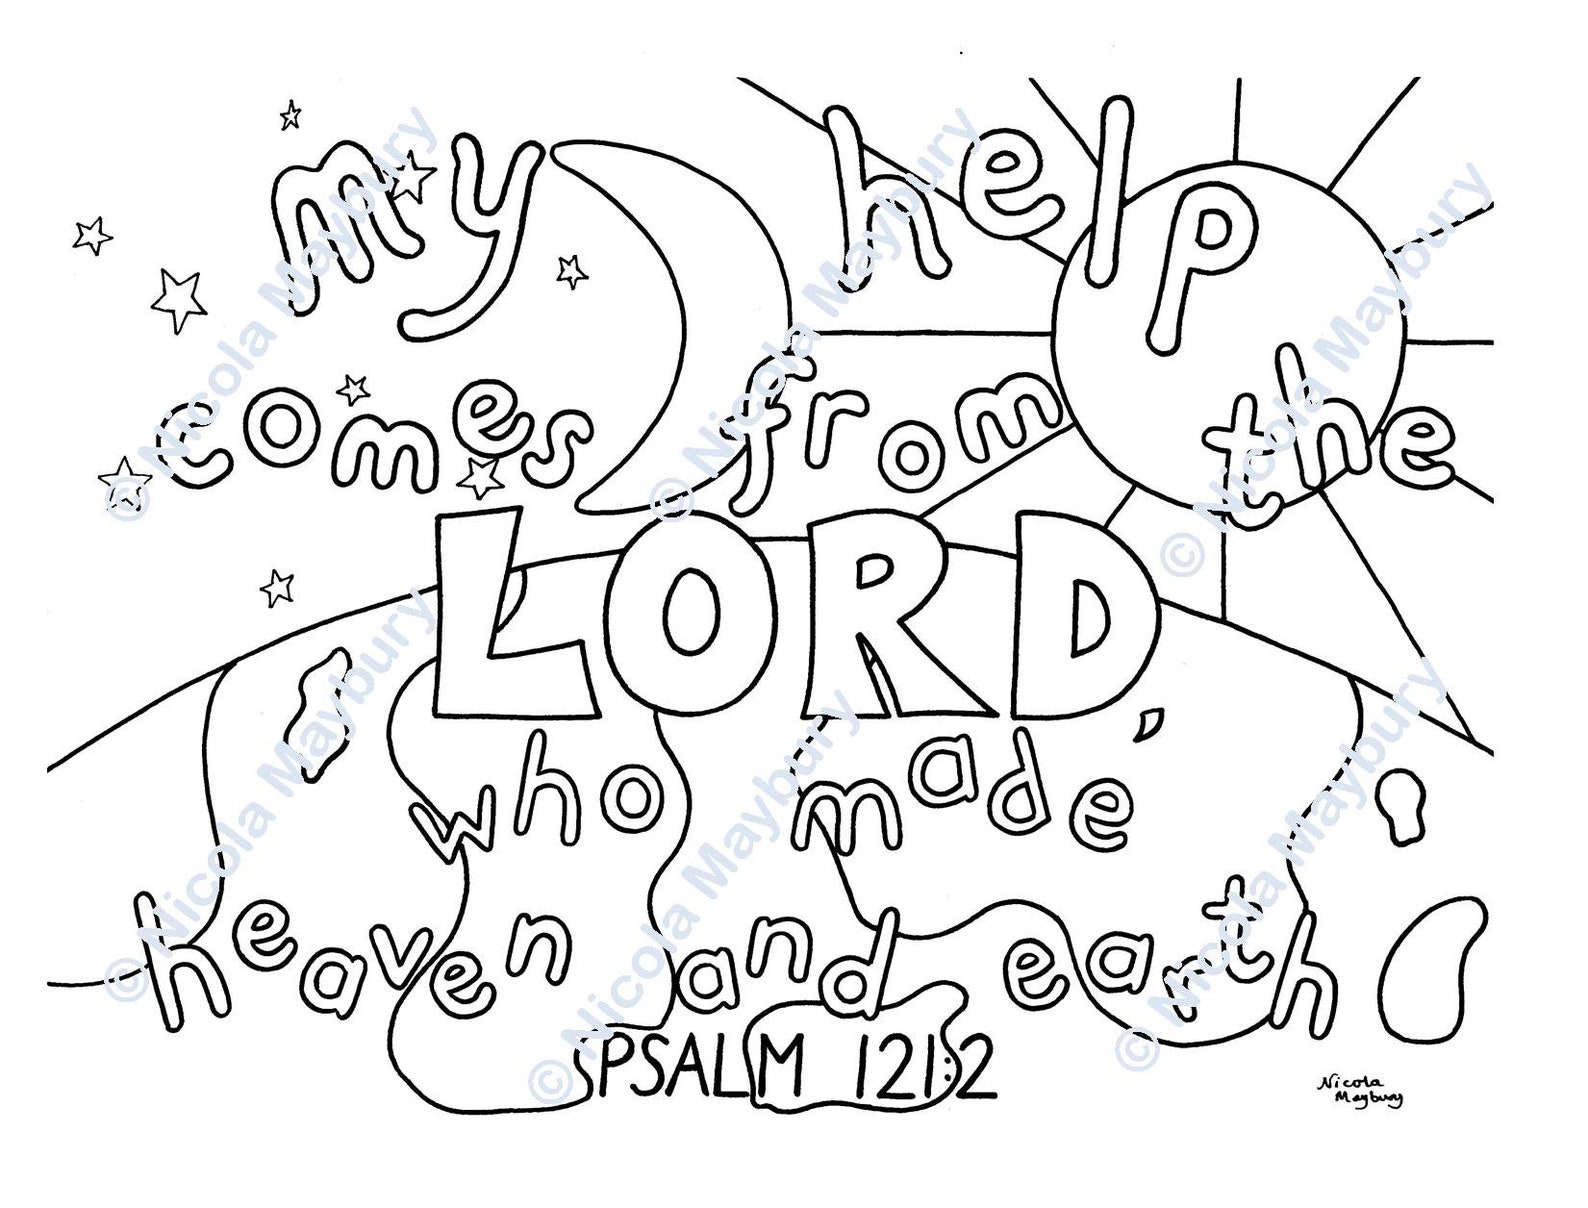 my help
comes from the
LORD,
who made
heaven and earth
PSALM 121:2
Nicola
Maybury
© Nicola Maybury
© Nicola Maybury
© Nicola Maybury
© Nicola Maybury
© Nicola Maybury
© Nicola Maybury